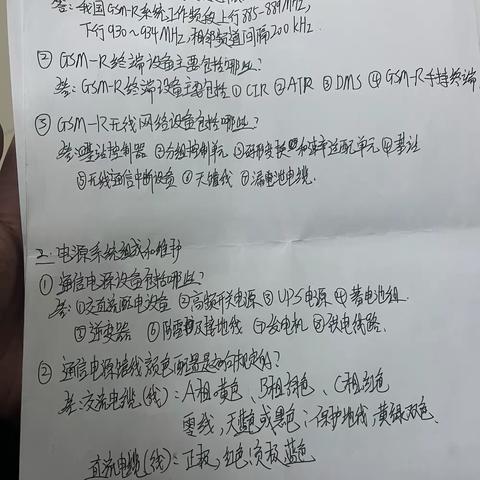 答：我国GSM-R系统工作频段上行885-889MHz，
下行930～934MHz，相邻频道间隔200KHz
② GSM-R终端设备主要包括哪些？
答：GSM-R终端设备主要包括①CIR ②ATR ③DMS ④GSM-R手持终端
③ GSM-R无线网络设备包括哪些？
答：①基站控制器 ②分组控制单元 ③码形变换和速率适配单元 ④基站
⑤无线通信中断设备 ⑥天馈线 ⑦漏泄电缆.
二.电源系统组成和维护
① 通信电源设备包括哪些？
答：①交直流配电设备 ②高频开关电源 ③UPS电源 ④蓄电池组
⑤逆变器 ⑥防雷及接地线 ⑦发电机 ⑧供电线路.
② 通信电源馈线颜色配置是如何规定的？
答：交流电缆（线）：A相黄色、B相绿色、C相红色
零线，天蓝或黑色；保护地线，黄绿双色.
直流电缆（线）：正极，红色；负极，蓝色